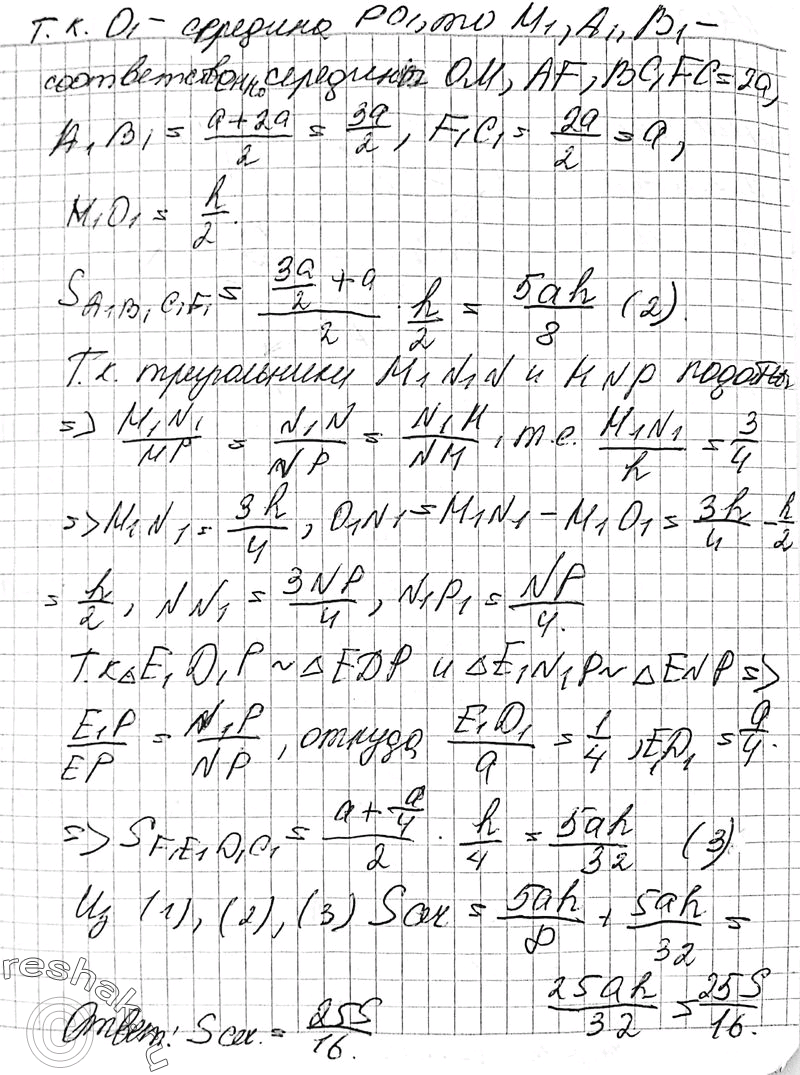 Т. к. O₁ – середина PO, то M₁, A₁, B₁ –
соответственно середины OM, AF, BC, FC = 2a,
A₁B₁ = (a+2a)/2 = 3a/2, F₁C₁ = 2a/2 = a,
M₁O₁ = h/2.
S_A₁B₁C₁F₁ = (3a/2 + a)/2 · h/2 = 5ah/8 (2).
Т.к. треугольники M₁N₁N и MNP подобны
=> M₁N₁/MP = N₁N/NP = N₁M/NM, т.е. M₁N₁/h = 3/4
=> M₁N₁ = 3h/4, O₁N₁ = M₁N₁ – M₁O₁ = 3h/4 – h/2
= h/2, NN₁ = 3NP/4, N₁P₁ = NP/4.
Т.к △E₁D₁P ~ △EDP и △E₁N₁P ~ △ENP =>
E₁P/EP = N₁P/NP, откуда E₁D₁/a = 1/4, E₁D₁ = a/4.
=> S_F₁E₁D₁C₁ = (a + a/4)/2 · h/4 = 5ah/32 (3)
Из (1), (2), (3) Sсеч = 5ah/8 + 5ah/32 =
25ah/32 = 25S/16.
Ответ: Sсеч. = 25S/16.
reshak.ru